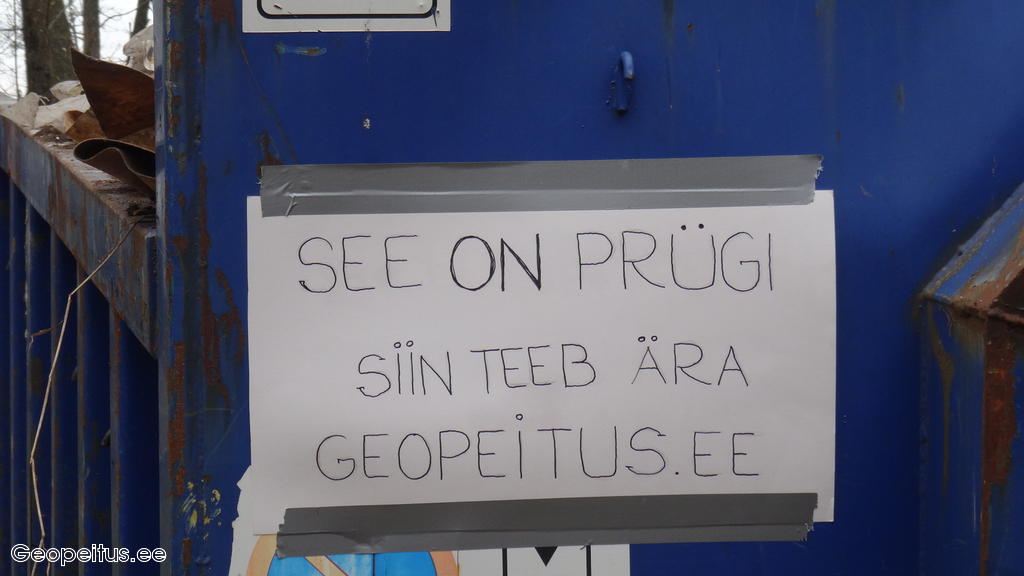 SEE ON PRÜGI
SIIN TEEB ÄRA
GEOPEITUS.EE
Geopeitus.ee